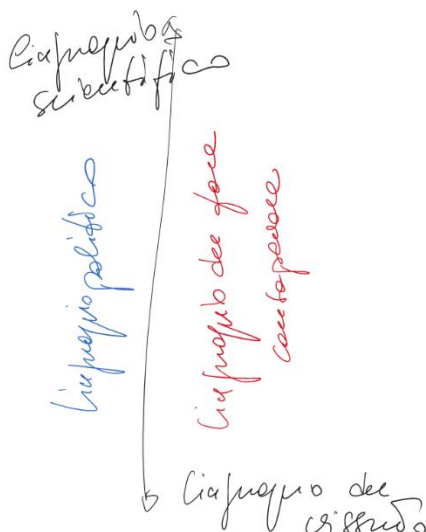 linguaggio
scientifico
linguaggio politico
linguaggio del fare
consapevole
linguaggio del
vissuto